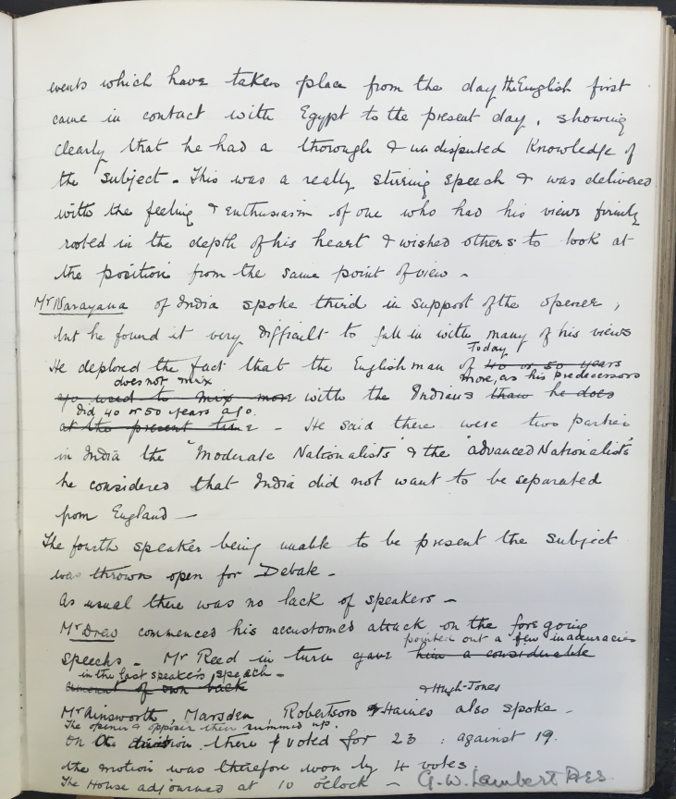 events which have taken place from the day the English first
came in contact with Egypt to the present day, showing
clearly that he had a thorough & undisputed Knowledge of
the subject - This was a really stirring speech & was delivered
with the feeling & enthusiasm of one who had his views firmly
rooted in the depth of his heart & wished others to look at
the position from the same point of view -
Mr Narayana of India spoke third in support of the opener,
but he found it very difficult to fall in with many of his views
Today
He deplored the fact that the Englishman of 40 or 50 years
does not mix more, as his predecessors
ago used to mix more with the Indians than he does
did 40 or 50 years ago.
at the present time - He said there were two parties
in India the "Moderate Nationalists" & the "advanced Nationalists"
he considered that India did not want to be separated
from England -
The fourth speaker being unable to be present the subject
was thrown open for Debate -
As usual there was no lack of speakers -
Mr Drew commenced his accustomed attack on the foregoing
pointed out a few inaccuracies
speechs - Mr Reed in turn gave him a considerable
in the last speakers speach -
amount of own back
& Hugh-Jones
Mr Ainsworth, Marsden, Robertson & Haines also spoke -
The opener & opposer then summed up.
On the division there voted for 23 : against 19.
the motion was therefore won by 4 votes.
The House adjourned at 10 o'clock - G. W. Lambert